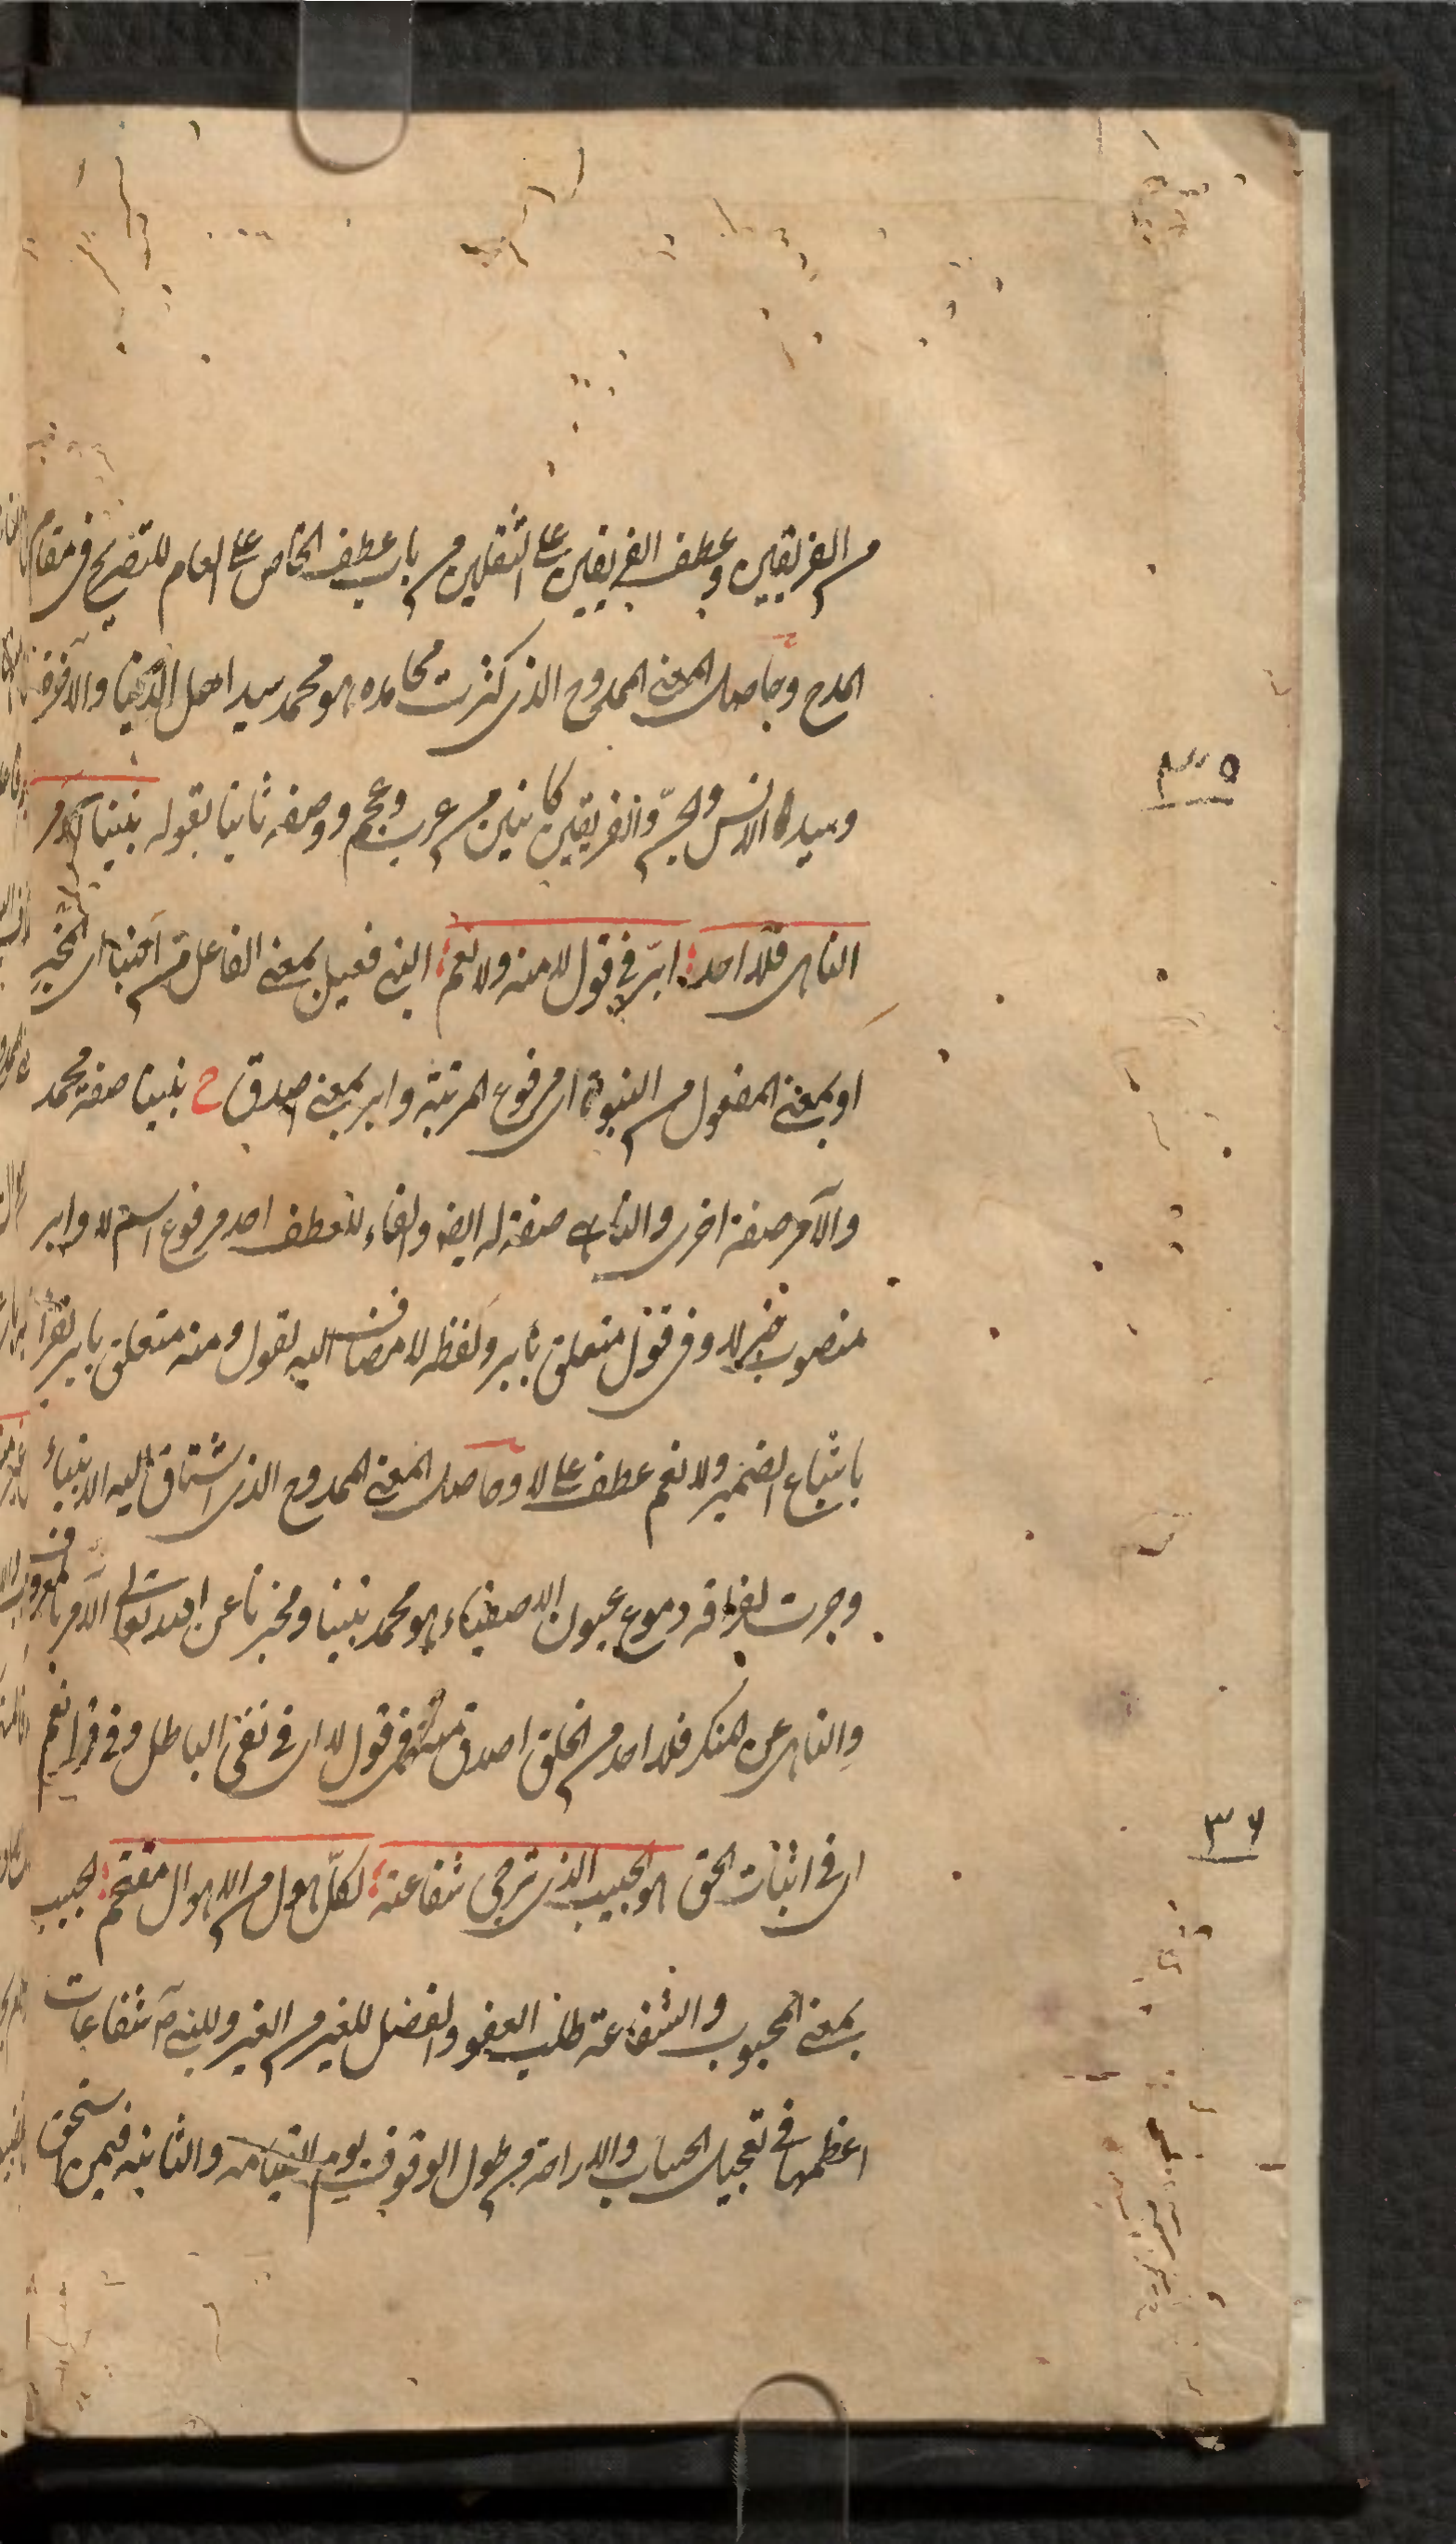 من الفريقين وعطف الفريقين على الثقلين من باب عطف الخاص على العام للتصريح فى مقام
المدح وحاصل المعنى الممدوح الذى كثرت محامده هو محمد سيد اهل الدنيا والآخرة
وسيد الانس والجن والفريقين كائنين من عرب وعجم ووصفه ثانيا بقوله نبينا الآمر
٣٥
الناهى فلا احد ؛ ابرّ فى قول لا منه ولا نعم ؛ النبى فعيل بمعنى الفاعل من انبأ اى المخبر
او بمعنى المفعول من النبوة اى مرفوع المرتبة وابر بمعنى اصدق ح نبينا صفة محمد
والآمر صفة اخرى والناهى صفة له ايضا والفاء للعطف احد مرفوع اسم لا وابر
منصوب خبر لا وفى قول متعلق بابر ولفظه لا مضاف اليه لقول ومنه متعلق بابر تقرأ
باشباع الضمير ولا نعم عطف على لا وحاصل المعنى الممدوح الذى اشتاق اليه الانبياء
وجرت لفراقه دموع عيون الاصفياء هو محمد نبينا ومخبرنا عن الله تعالى الآمر بالمعروف
والناهى عن المنكر فلا احد من الخلق اصدق منه فى قول لا اى فى نفى الباطل وفى قول نعم
اى فى اثبات الحق هو الحبيب الذى ترجى شفاعته ؛ لكلّ هول من الاهوال مقتحم ؛ الحبيب
٣٦
بمعنى المحبوب والشفاعة طلب العفو والفضل للغير من الغير وللنبى ص شفاعات
اعظمها فى تعجيل الحساب والاراحة من طول الوقوف يوم القيامه والثانيه فيمن استحق